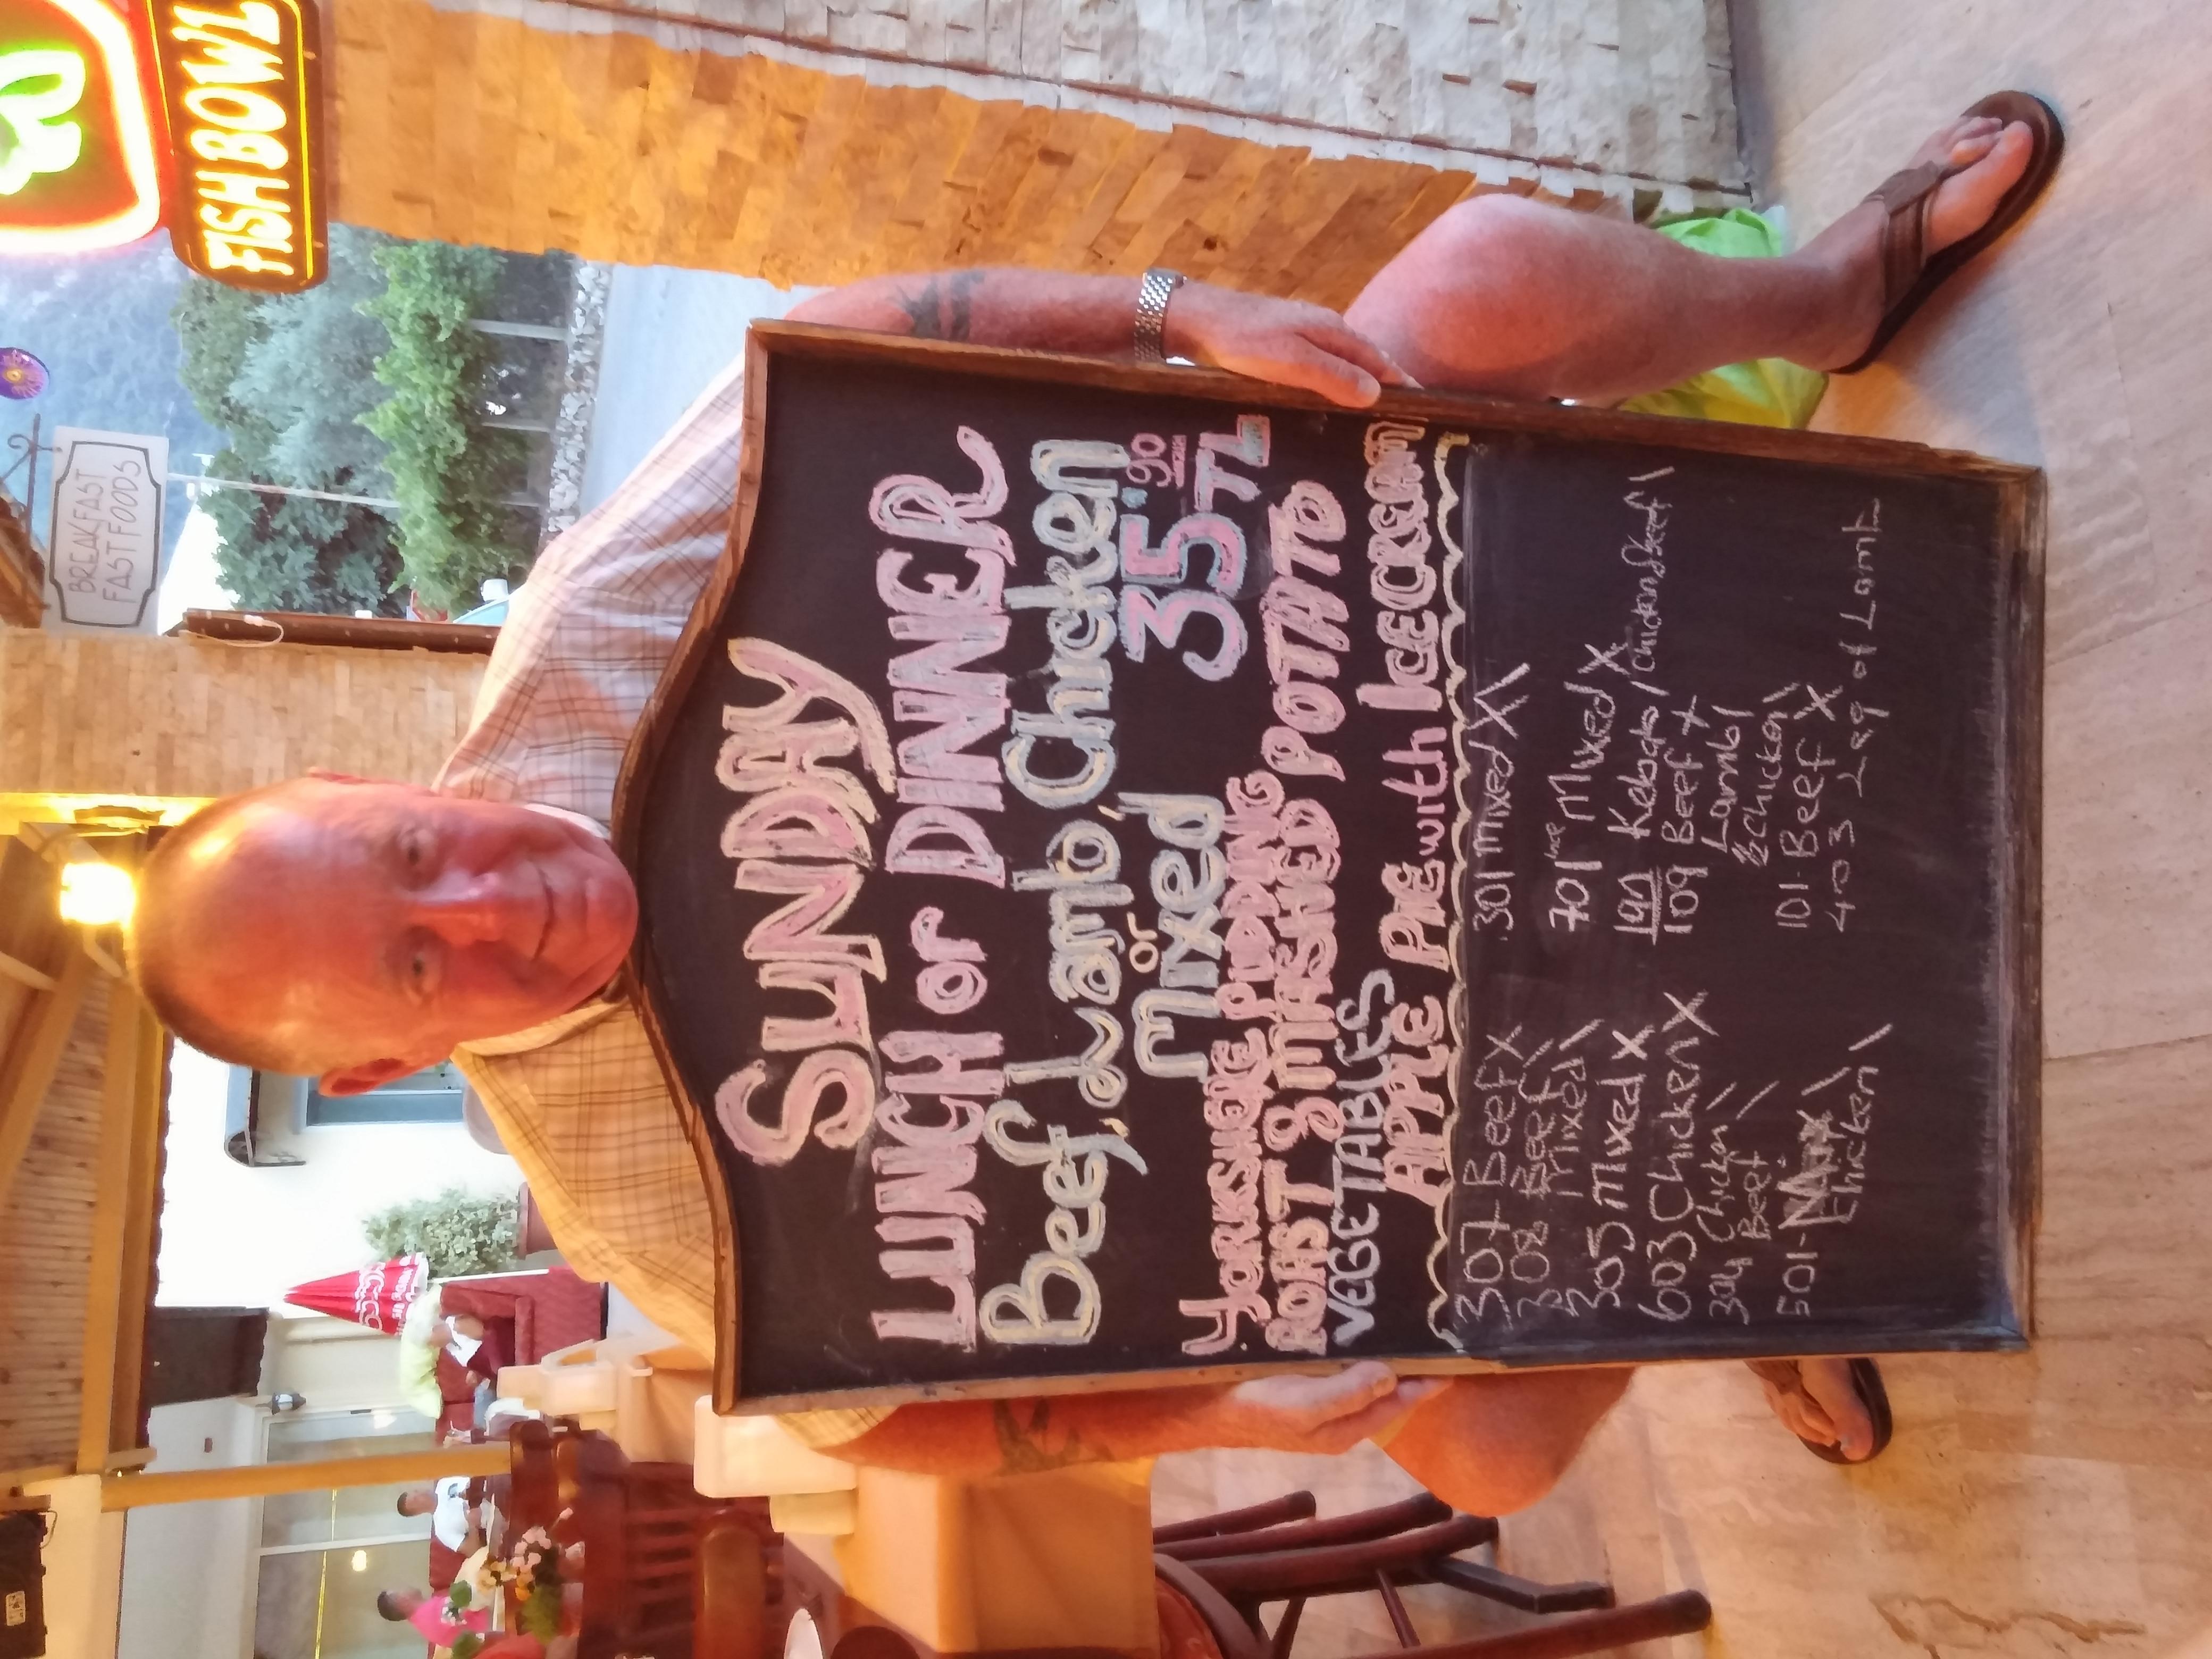 FISH BOWL
BREAKFAST
FAST FOODS
SUNDAY
LUNCH or DINNER
Beef, Lamb, Chicken
or
Mixed
35.90
TL
YORKSHIRE PUDDING
ROAST & MASHED POTATO
VEGETABLES
APPLE PIE with ICE CREAM
307 Beef X
308 Beef \
mixed \
305 Mixed X
603 Chicken X
304 Chicken \
Beef \
501-
Chicken \
301 mixed X \
701 Mixed X
109 Beef X
Lamb /
& Chicken \
101-Beef X
403 Leg of Lamb